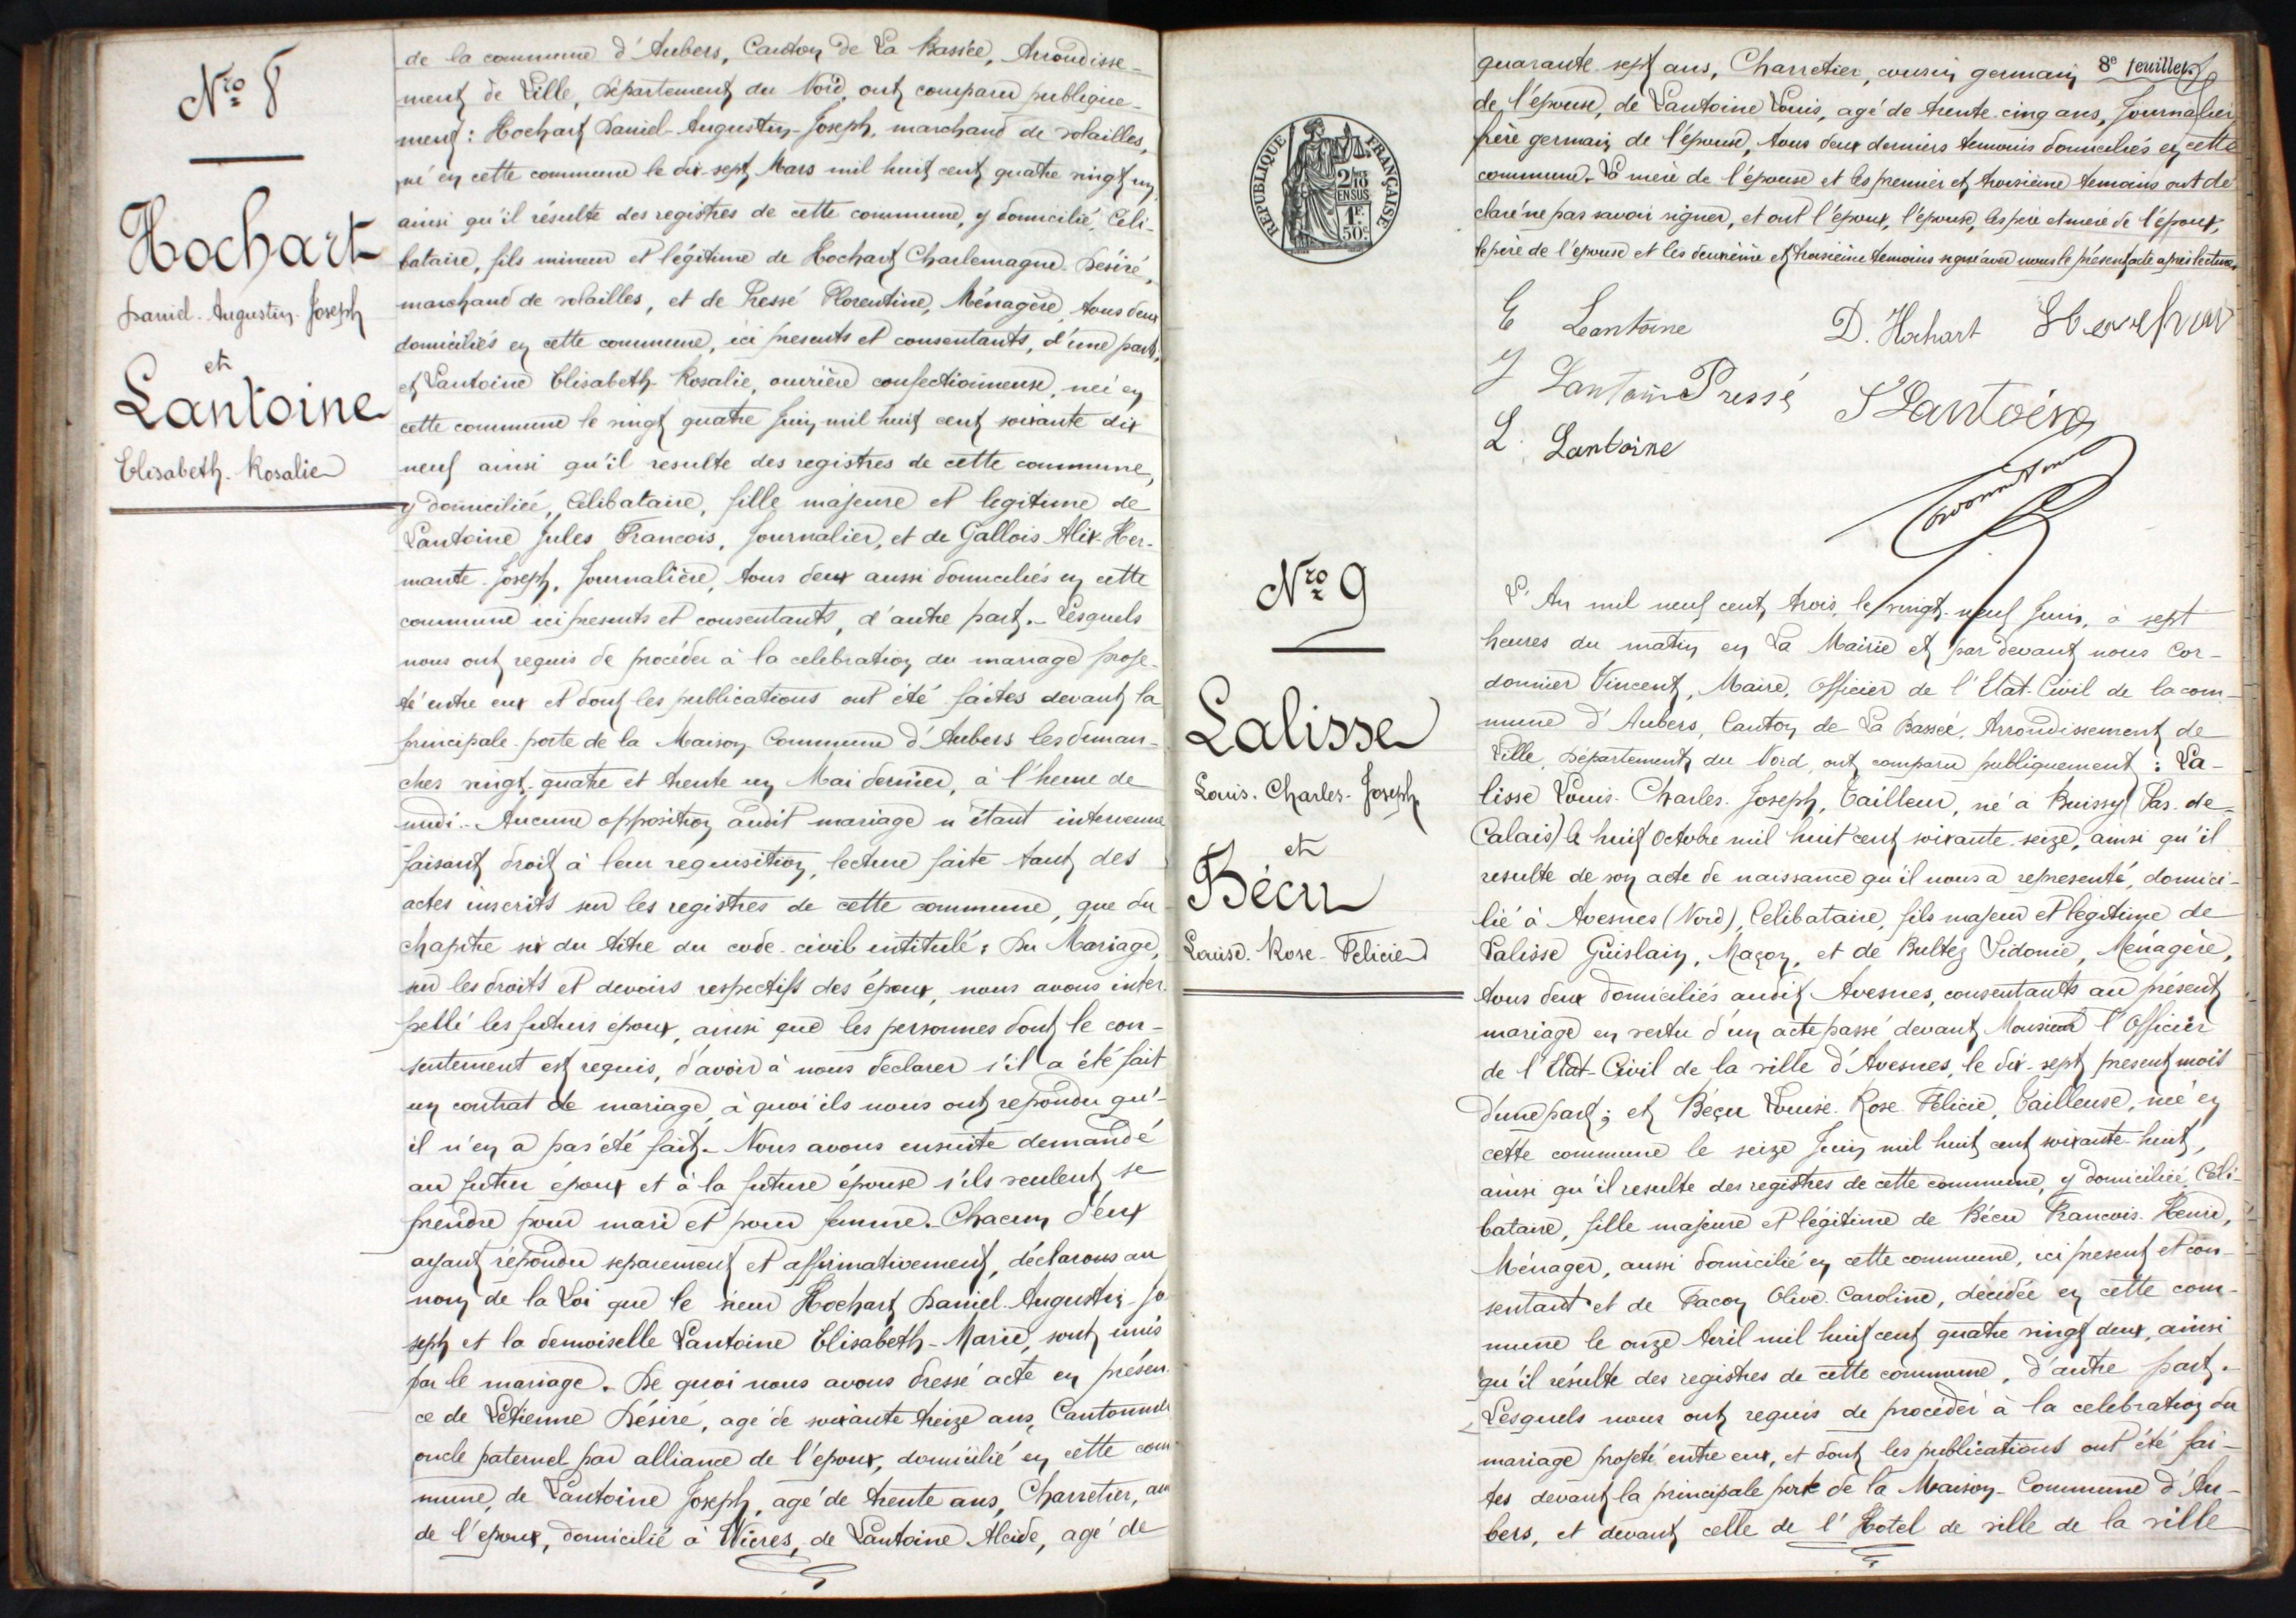 Nro 8
Hochart
Daniel-Augustin-Joseph
et
Lantoine
Elisabeth-Rosalie
de la commune d'Aubers, Canton de La Bassée, Arrondisse-
ment de Lille, Département du Nord, ont comparu publique-
ment : Hochart Daniel-Augustin-Joseph, marchand de volailles,
né en cette commune le dix-sept Mars mil huit cent quatre vingt un
ainsi qu'il résulte des registres de cette commune, y domicilié, Céli-
bataire, fils mineur et légitime de Hochart Charlemagne-Désiré,
marchand de volailles, et de Pressé Florentine, Ménagère, tous deux
domiciliés en cette commune, ici presents et consentants, d'une part,
et Lantoine Elisabeth-Rosalie, ouvrière confectionneuse, née en
cette commune le vingt quatre Juin mil huit cent soixante dix
neuf ainsi qu'il resulte des registres de cette commune,
y domiciliée, Célibataire, fille majeure et legitime de
Lantoine Jules François, Journalier, et de Gallois Alix-Her-
mante-Joseph, Journalière, tous deux aussi domiciliés en cette
commune ici presents et consentants, d'autre part.- Lesquels
nous ont requis de procéder à la celebration du mariage proje-
té entre eux et dont les publications ont été faites devant la
principale porte de la Maison Commune d'Aubers les diman-
ches vingt-quatre et trente un Mai dernier, à l'heure de
midi.- Aucune opposition audit mariage n'étant intervenue
faisant droit à leur requisition, lecture faite tant des
actes inscrits sur les registres de cette commune, que du
chapitre six du titre du code-civil intitulé : Du Mariage,
sur les droits et devoirs respectifs des époux, nous avons inter-
pellé les futurs époux, ainsi que les personnes dont le con-
sentement est requis, d'avoir à nous déclarer s'il a été fait
un contrat de mariage, à quoi ils nous ont repondu qu'-
il n'en a pas été fait.- Nous avons ensuite demandé
au futur époux et à la future épouse s'ils veulent se
prendre pour mari et pour femme. Chacun d'eux
ayant répondu separement et affirmativement, déclarons au
nom de la Loi que le sieur Hochart Daniel-Augustin-Jo
seph et la demoiselle Lantoine Elisabeth-Marie, sont unis
par le mariage. De quoi nous avons dressé acte en présen-
ce de Letienne Désiré, agé de soixante treize ans, Cantonnier
oncle paternel par alliance de l'époux, domicilié en cette com-
mune, de Lantoine Joseph, agé de trente ans, Charretier, ami
de l'époux, domicilié à Wicres, de Lantoine Alcide, agé de
8e feuillet
quarante-sept ans, Charretier, cousin germain
de l'épouse, de Lantoine Louis, agé de trente-cinq ans, Journalier
frère germain de l'épouse, tous deux derniers temoins domiciliés en cette
commune. La mère de l'épouse et les premier et troisième temoins ont dé
claré ne pas savoir signer, et ont l'époux, l'épouse, les père et mère de l'époux,
le père de l'épouse et les deuxième et troisième temoins signé avec nous le présent acte après lecture.
REPUBLIQUE FRANÇAISE
2/10 EN SUS
1F.
50c
E Lantoine D. Hochart
J Lantoine Pressé J Lantoine
L. Lantoine
Nro 9
Lalisse
Louis-Charles-Joseph
et
Bécu
Louise-Rose-Felicie
L'An mil neuf cent trois, le vingt-neuf Juin, à sept
heures du matin en La Mairie et par devant nous Cor-
donnier Vincent, Maire, Officier de l'Etat-Civil de la com-
mune d'Aubers, Canton de La Bassée, Arrondissement de
Lille, Département du Nord, ont comparu publiquement : La-
lisse Louis-Charles-Joseph, Tailleur, né à Buissy (Pas-de-
Calais) le huit Octobre mil huit cent soixante-seize, ainsi qu'il
resulte de son acte de naissance qu'il nous a representé, domici-
lié à Avesnes (Nord), Celibataire, fils majeur et légitime de
Lalisse Guislain, Maçon, et de Bultez Sidonie, Ménagère,
tous deux domiciliés audit Avesnes, consentants au présent
mariage en vertu d'un acte passé devant Monsieur l'Officier
de l'Etat-Civil de la ville d'Avesnes, le dix-sept present mois
d'une part ; et Béçu Louise-Rose-Félicie, Tailleuse, née en
cette commune le seize Juin mil huit cent soixante-huit,
ainsi qu'il resulte des registres de cette commune, y domiciliée, Céli-
bataire, fille majeure et légitime de Bécu François-Henri,
Ménager, aussi domicilié en cette commune, ici present et con-
sentant et de Facon Olive-Caroline, décédée en cette com-
mune le onze Avril mil huit cent quatre vingt deux, ainsi
qu'il résulte des registres de cette commune, d'autre part.-
Lesquels nous ont requis de procéder à la celebration du
mariage projeté entre eux, et dont les publications ont été fai-
tes devant la principale porte de la Maison-Commune d'Au-
bers, et devant celle de l'Hotel de ville de la ville